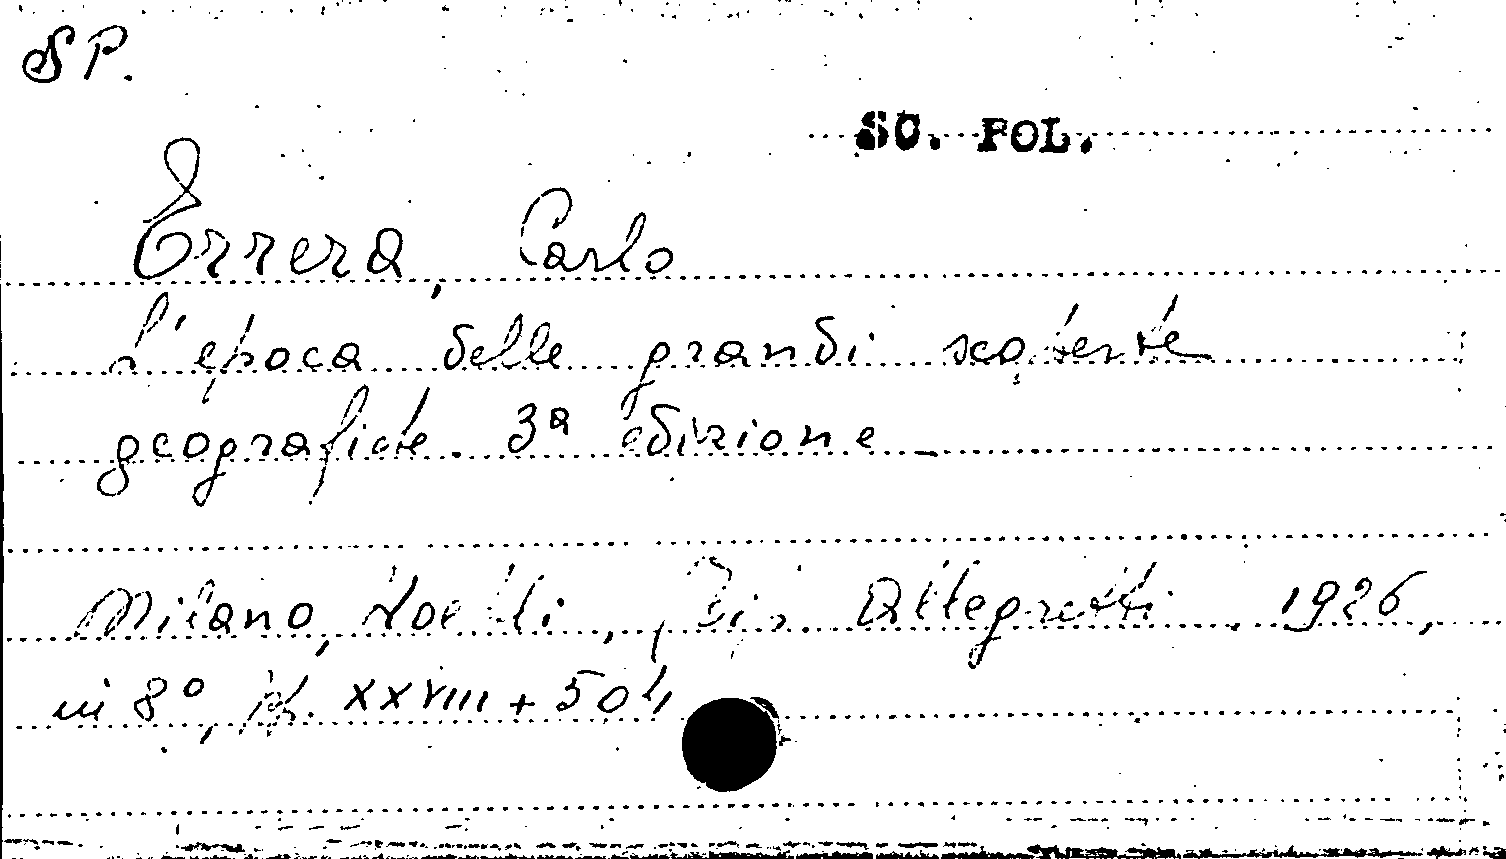 SP.
SC. POL.
Errera, Carlo
L'epoca delle grandi scoperte
geografiche. 3ª edizione
Milano, Hoepli, (Tip. Allegretti. 1926,
in 8°, pp. XXVIII + 504